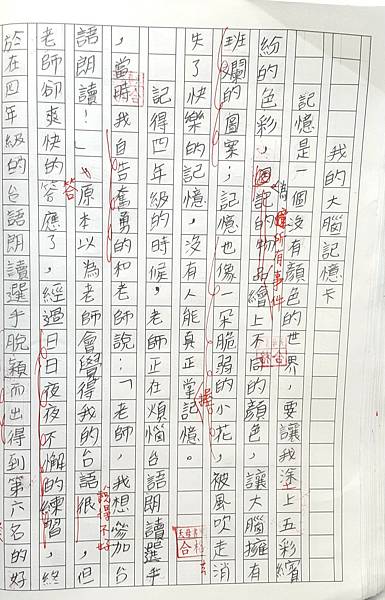 我的大腦記憶卡
記憶是一個沒有顏色的世界，要讓我塗上五彩繽
紛的色彩，的物品繪上不同的顏色，讓大腦擁有
為所有事件
班斕的圖案；記憶也像一朵脆弱的小花，被風吹走消
失了快樂的記憶，沒有人能真正掌記憶。
握
記得四年級的時候，老師正在煩惱台語朗讀選手
合格
，當時我自告奮勇的和老師說：「老師，我想參加台
語朗讀！」原本以為老師會覺得我的台語很，但
說得不好
老師卻爽快的答應了，經過日日夜夜不懈的練習，終
答
於在四年級的台語朗讀選手脫穎而出得到第六名的好